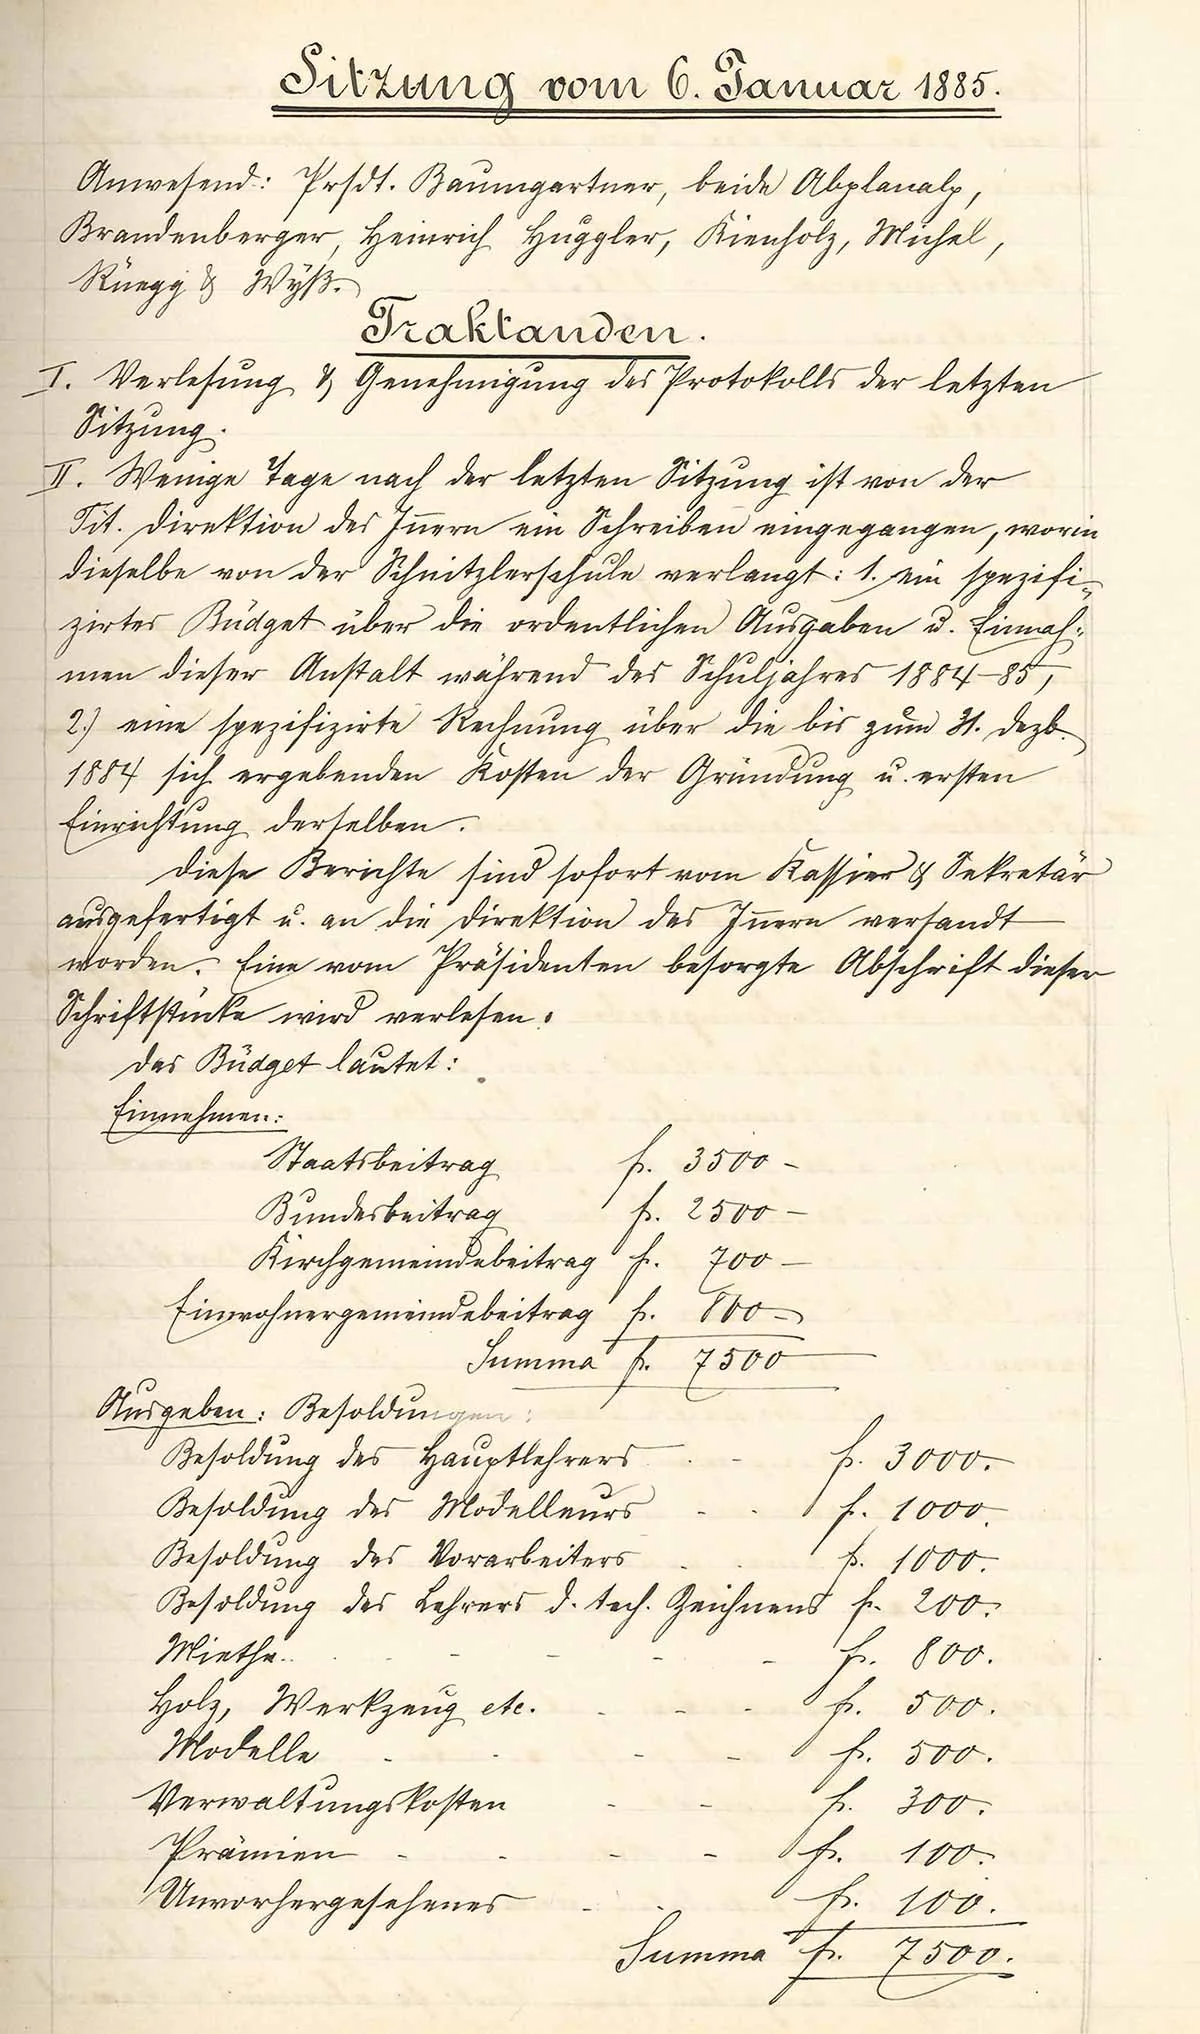 Sitzung vom 6. Januar 1885.
Anwesend: Prsdt. Baumgartner, beide Abplanalp,
Brandenberger, Heinrich Huggler, Kienholz, Michel,
Rüegg & Wyß.
Traktanden.
I. Verlesung & Genehmigung des Protokolls der letzten
Sitzung.
II. Wenige Tage nach der letzten Sitzung ist von der
Tit. Direktion des Innern ein Schreiben eingegangen, worin
dieselbe von der Schnitzlerschule verlangt: 1. ein spezifi-
zirtes Büdget über die ordentlichen Ausgaben u. Einnah-
men dieser Anstalt während des Schuljahres 1884-85,
2.) eine spezifizirte Rechnung über die bis zum 31. Dezb.
1884 sich ergebenden Kosten der Gründung u. ersten
Einrichtung derselben.
Diese Berichte sind sofort vom Kassier & Sekretär
ausgefertigt u. an die Direktion des Innern versandt
worden. Eine vom Präsidenten besorgte Abschrift dieser
Schriftstücke wird verlesen.
Das Büdget lautet:
Einnehmen:
Staatsbeitrag fr. 3500 -
Bundesbeitrag fr. 2500 -
Kirchgemeindebeitrag fr. 700 -
Einwohnergemeindebeitrag fr. 800 -
Summa fr. 7500
Ausgeben: Besoldungen:
Besoldung des Hauptlehrers - - fr. 3000.
Besoldung des Modelleurs - - fr. 1000.
Besoldung des Vorarbeiters - - fr. 1000.
Besoldung des Lehrers d. tech. Zeichnens fr. 200.
Miethe - - - - - fr. 800.
Holz, Werkzeug etc. - - - fr. 500.
Modelle - - - - fr. 500.
Verwaltungskosten - - fr. 300.
Prämien - - - - fr. 100.
Unvorhergesehenes - - fr. 100.
Summa fr. 7500.